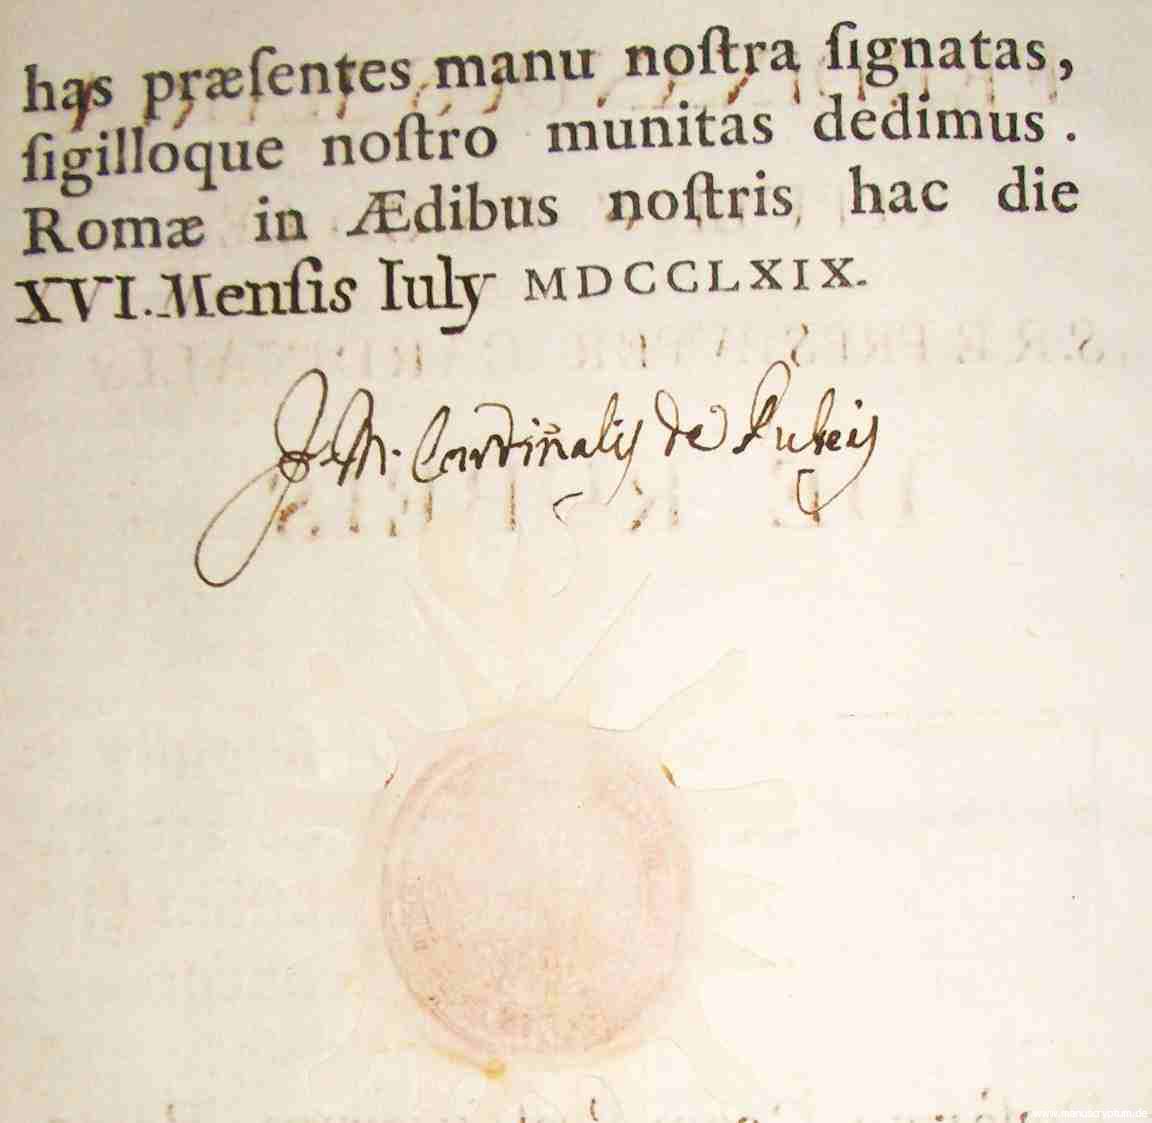 has præſentes manu noſtra ſignatas,
ſigilloque noſtro munitas dedimus.
Romæ in Ædibus noſtris hac die
XVI. Menſis Iuly MDCCLXIX.
J. M. Cardinalis de Rubeis
www.manuscryptum.de